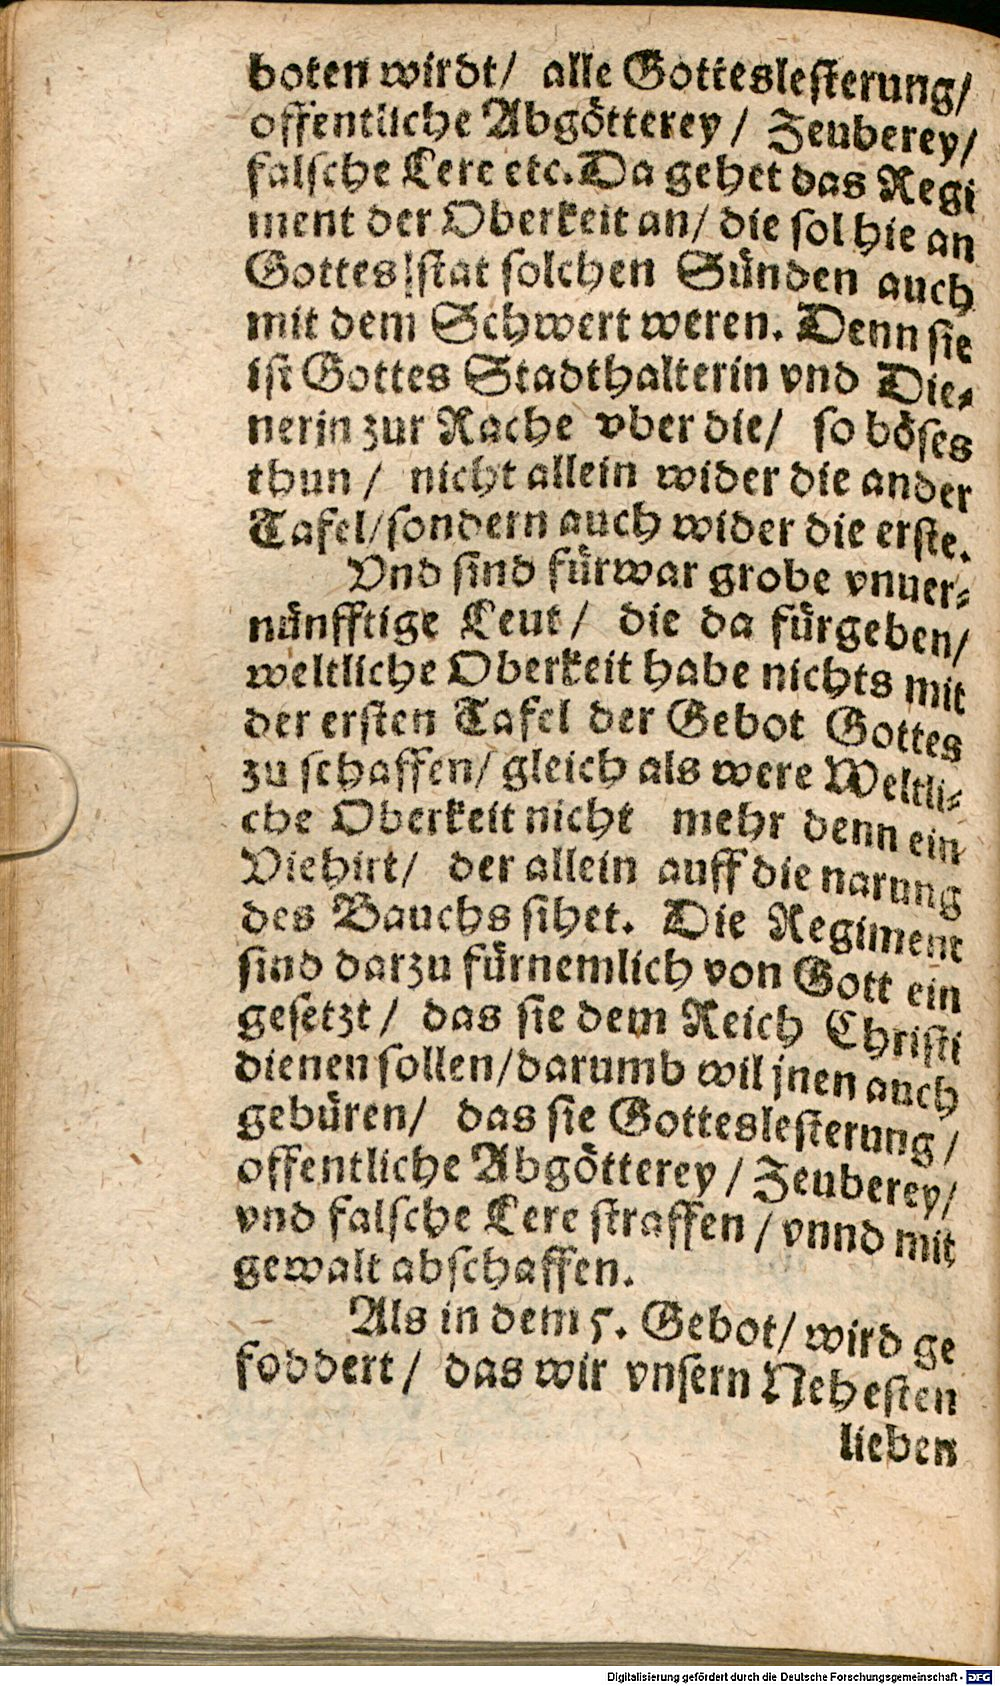 boten wirdt/ alle Gotteslesterung/
offentliche Abgötterey / Zeuberey/
falsche Lere etc. Da gehet das Regi
ment der Oberkeit an/ die sol hie an
Gottes stat solchen Sünden auch
mit dem Schwert weren. Denn sie
ist Gottes Stadthalterin vnd Die⸗
nerin zur Rache vber die/ so böses
thun / nicht allein wider die ander
Tafel/sondern auch wider die erste.
Vnd sind fürwar grobe vnuer⸗
nünfftige Leut / die da fürgeben/
weltliche Oberkeit habe nichts mit
der ersten Tafel der Gebot Gottes
zu schaffen/ gleich als were Weltli⸗
che Oberkeit nicht mehr denn ein
Viehirt/ der allein auff die narung
des Bauchs sihet. Die Regiment
sind darzu fürnemlich von Gott ein
gesetzt / das sie dem Reich Christi
dienen sollen/darumb wil jnen auch
gebüren/ das sie Gotteslesterung /
offentliche Abgötterey / Zeuberey/
vnd falsche Lere straffen / vnnd mit
gewalt abschaffen.
Als in dem 5. Gebot/ wird ge
foddert / das wir vnsern Nehesten
lieben
Digitalisierung gefördert durch die Deutsche Forschungsgemeinschaft - DFG